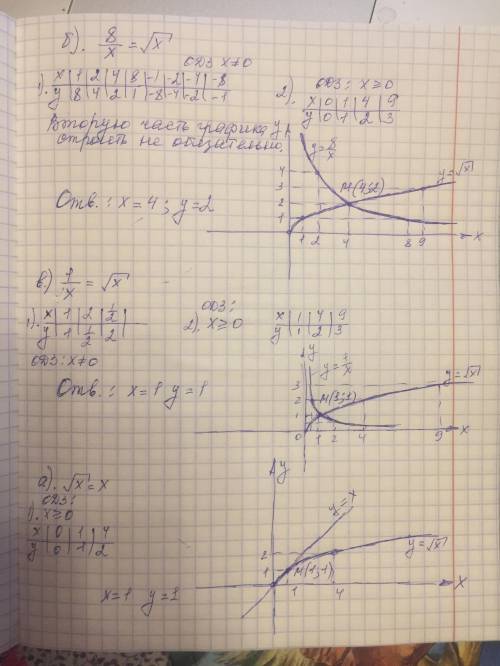 б). 8/x = √x
ОДЗ x≠0
1). x | 1 | 2 | 4 | 8 | -1 | -2 | -4 | -8
y | 8 | 4 | 2 | 1 | -8 | -4 | -2 | -1
2). ОДЗ: x≥0
x | 0 | 1 | 4 | 9
y | 0 | 1 | 2 | 3
Вторую часть графика
строить не обязательно.
y
y=8/x
4
3
2
1
M(4;2)
y=√x
1 2 4 8 9 x
Отв.: x=4; y=2
в) 1/x = √x
1). x | 1 | 2 | 1/2
y | 1 | 1/2 | 2
ОДЗ: x≠0
ОДЗ:
2). x≥0
x | 1 | 4 | 9
y | 1 | 2 | 3
Отв.: x=1 y=1
y
y=1/x
3
2
1
M(1;1)
y=√x
0 1 2 4 9 x
а). √x = x
ОДЗ:
1). x≥0
x | 0 | 1 | 4
y | 0 | 1 | 2
x=1 y=1
y
y=x
2
1
M(1;1)
y=√x
1 4 x